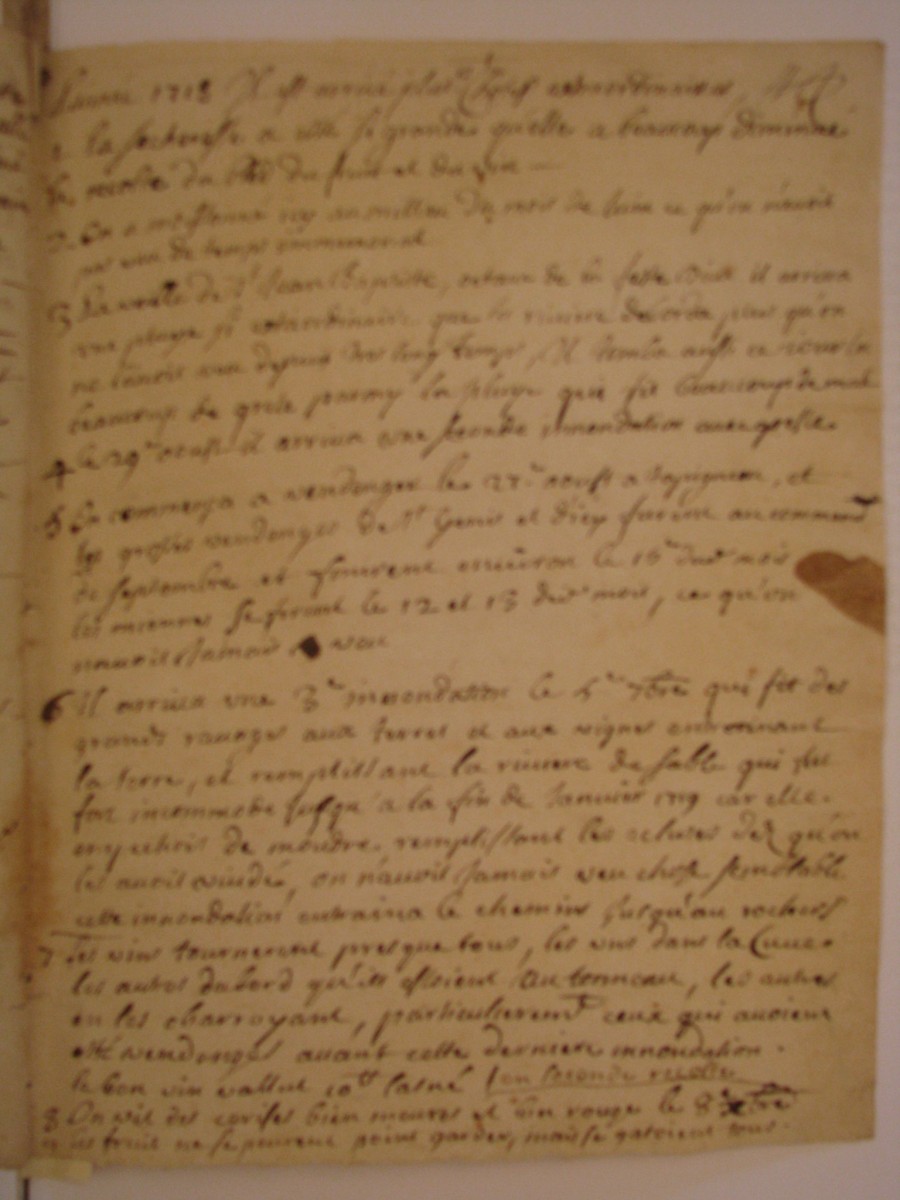 L'année 1718 Il est arrivé plus.rs choses extraordinaires
1 la secheresse a esté si grande qu'elle a beaucoup diminué
la recolte du bled du fruit et du vin —
2. On a moissonné icy au milieu du mois de Juin ce qu'on n'avoit
pas veu de temps immemorial
3 La veille de st Jean Baptiste, octave de la feste Dieu il arriva
une pluye si extraordinaire que la riviere deborda plus qu'on
ne l'avoit veu depuis tres long temps, Il tomba aussi ce jour la
beaucoup de grele parmy la pluye qui fit beaucoup de mal
4 le 29e aoust il arriva une seconde innondation avec gresle.
5 On commença a vendenger le 27e aoust a et
les grosses vendenges de st Genis et furent au commenct
de septembre et finirent environ le 16e dud mois
les miennes se firent le 12 et 13 dud mois, ce qu'on
n'avoit Jamais veu
6 Il arriva une 3e innondation le 5e 7bre qui fit des
grands ravages aux terres et aux vignes entrainant
la terre, et remplissant la riviere de sable qui fut
fort incommode jusqu'a la fin de Janvier 1719 car elle
empechoit de moudre remplissant les ecluses dez qu'on
les avoit vuidé, on n'avoit Jamais veu chose semblable
cette innondation entraina le chemins jusqu'au rochers
7 Les vins tournerent presque tous, les uns dans la Cuve
les autres dabord qu'ils estoient au tonneau, les autres
en les charroyant, particulieremt ceux qui avoient
esté vendengés avant cette derniere innondation.
le bon vin vallut 10tt lasné
8 On vit des cerises bien meures et le 8e
les fruit ne se peurent point garder, mais se gatoient tous.